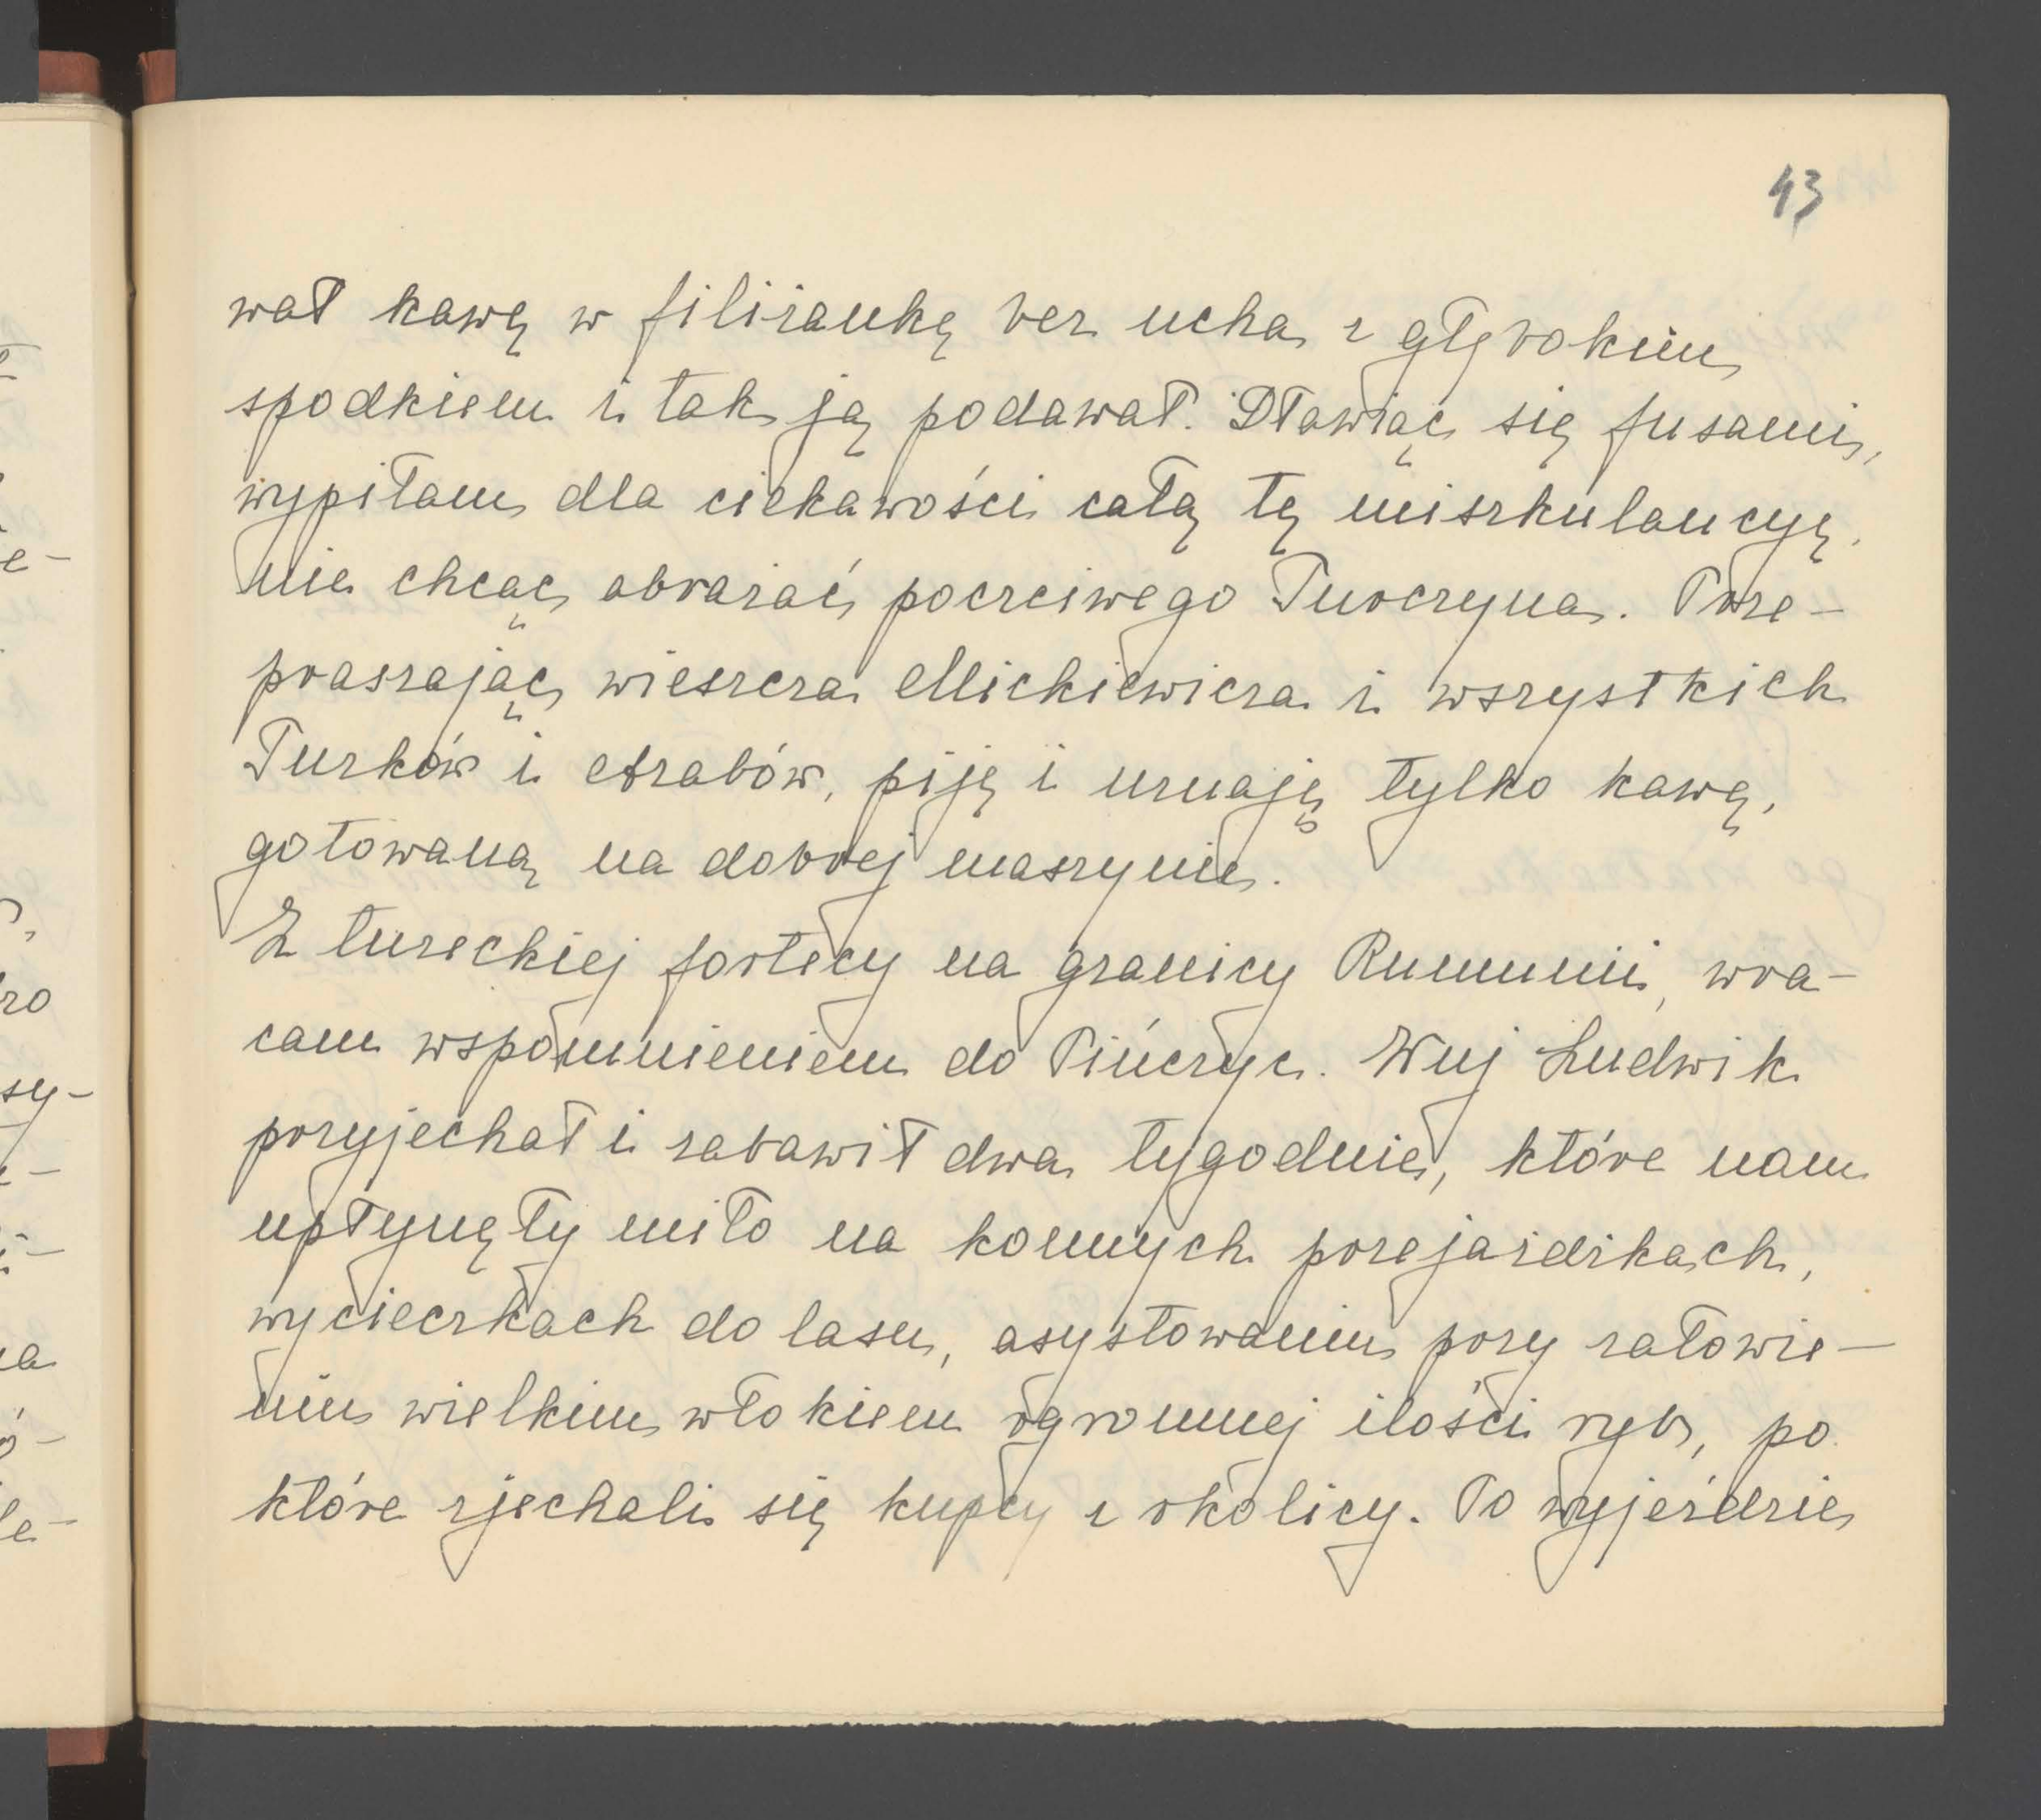 43
wał kawę w filiżankę bez ucha z głębokim
spodkiem i tak ją podawał. Dławiąc się fusami,
wypiłam dla ciekawości całą tę miszkulancyę,
nie chcąc obrażać poczciwego Turczyna. Prze-
praszając wieszcza Mickiewicza i wszystkich
Turków i Arabów, piję i uznaję tylko kawę,
gotowaną na dobrej maszynie.
Z tureckiej fortecy na granicy Rumunii, wra-
cam wspomnieniem do Pińczyc. Wuj Ludwik
przyjechał i zabawił dwa tygodnie, które nam
upłynęły miło na konnych przejażdżkach,
wycieczkach do lasu, asystowaniu przy załowie-
niu wielkim włokiem ogromnej ilości ryb, po
które zjechali się kupcy z okolicy. Po wyjeździe